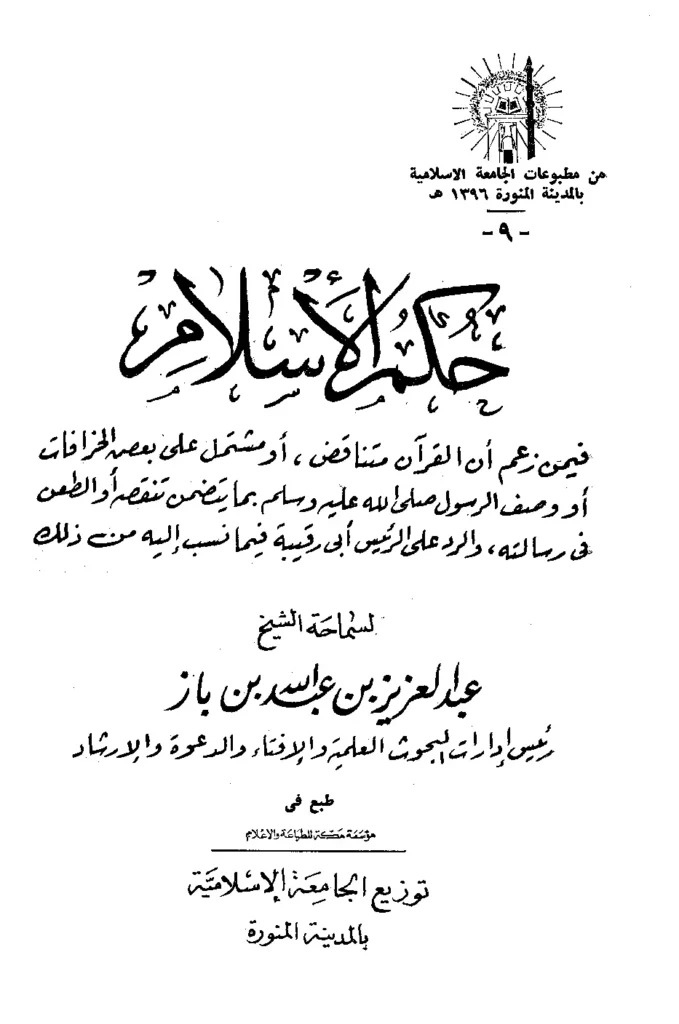 من مطبوعات الجامعة الاسلامية
بالمدينة المنورة ١٣٩٦ هـ
- ٩ -
حُكمُ الأِسْلَامِ
فيمن زعم أن القرآن متناقض ، أو مشتمل على بعض الخرافات
أو وصف الرسول صلى الله عليه وسلم بما يتضمن تنقصه أو الطعن
في رسالته ، والرد على الرئيس أبي رقيبة فيما نسب إليه من ذلك
لسماحة الشيخ
عبد العزيز بن عبد الله بن باز
رئيس إدارات البحوث العلمية والإفتاء والدعوة والإرشاد
طبع في
مؤسسة مكة للطباعة والاعلام
توزيع الجامعة الإسلامية
بالمدينة المنورة